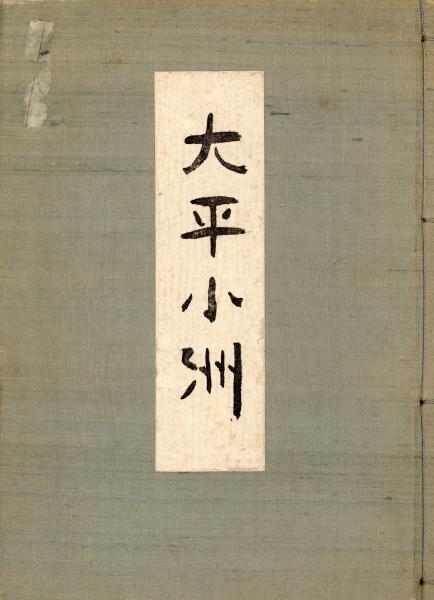 大平小洲